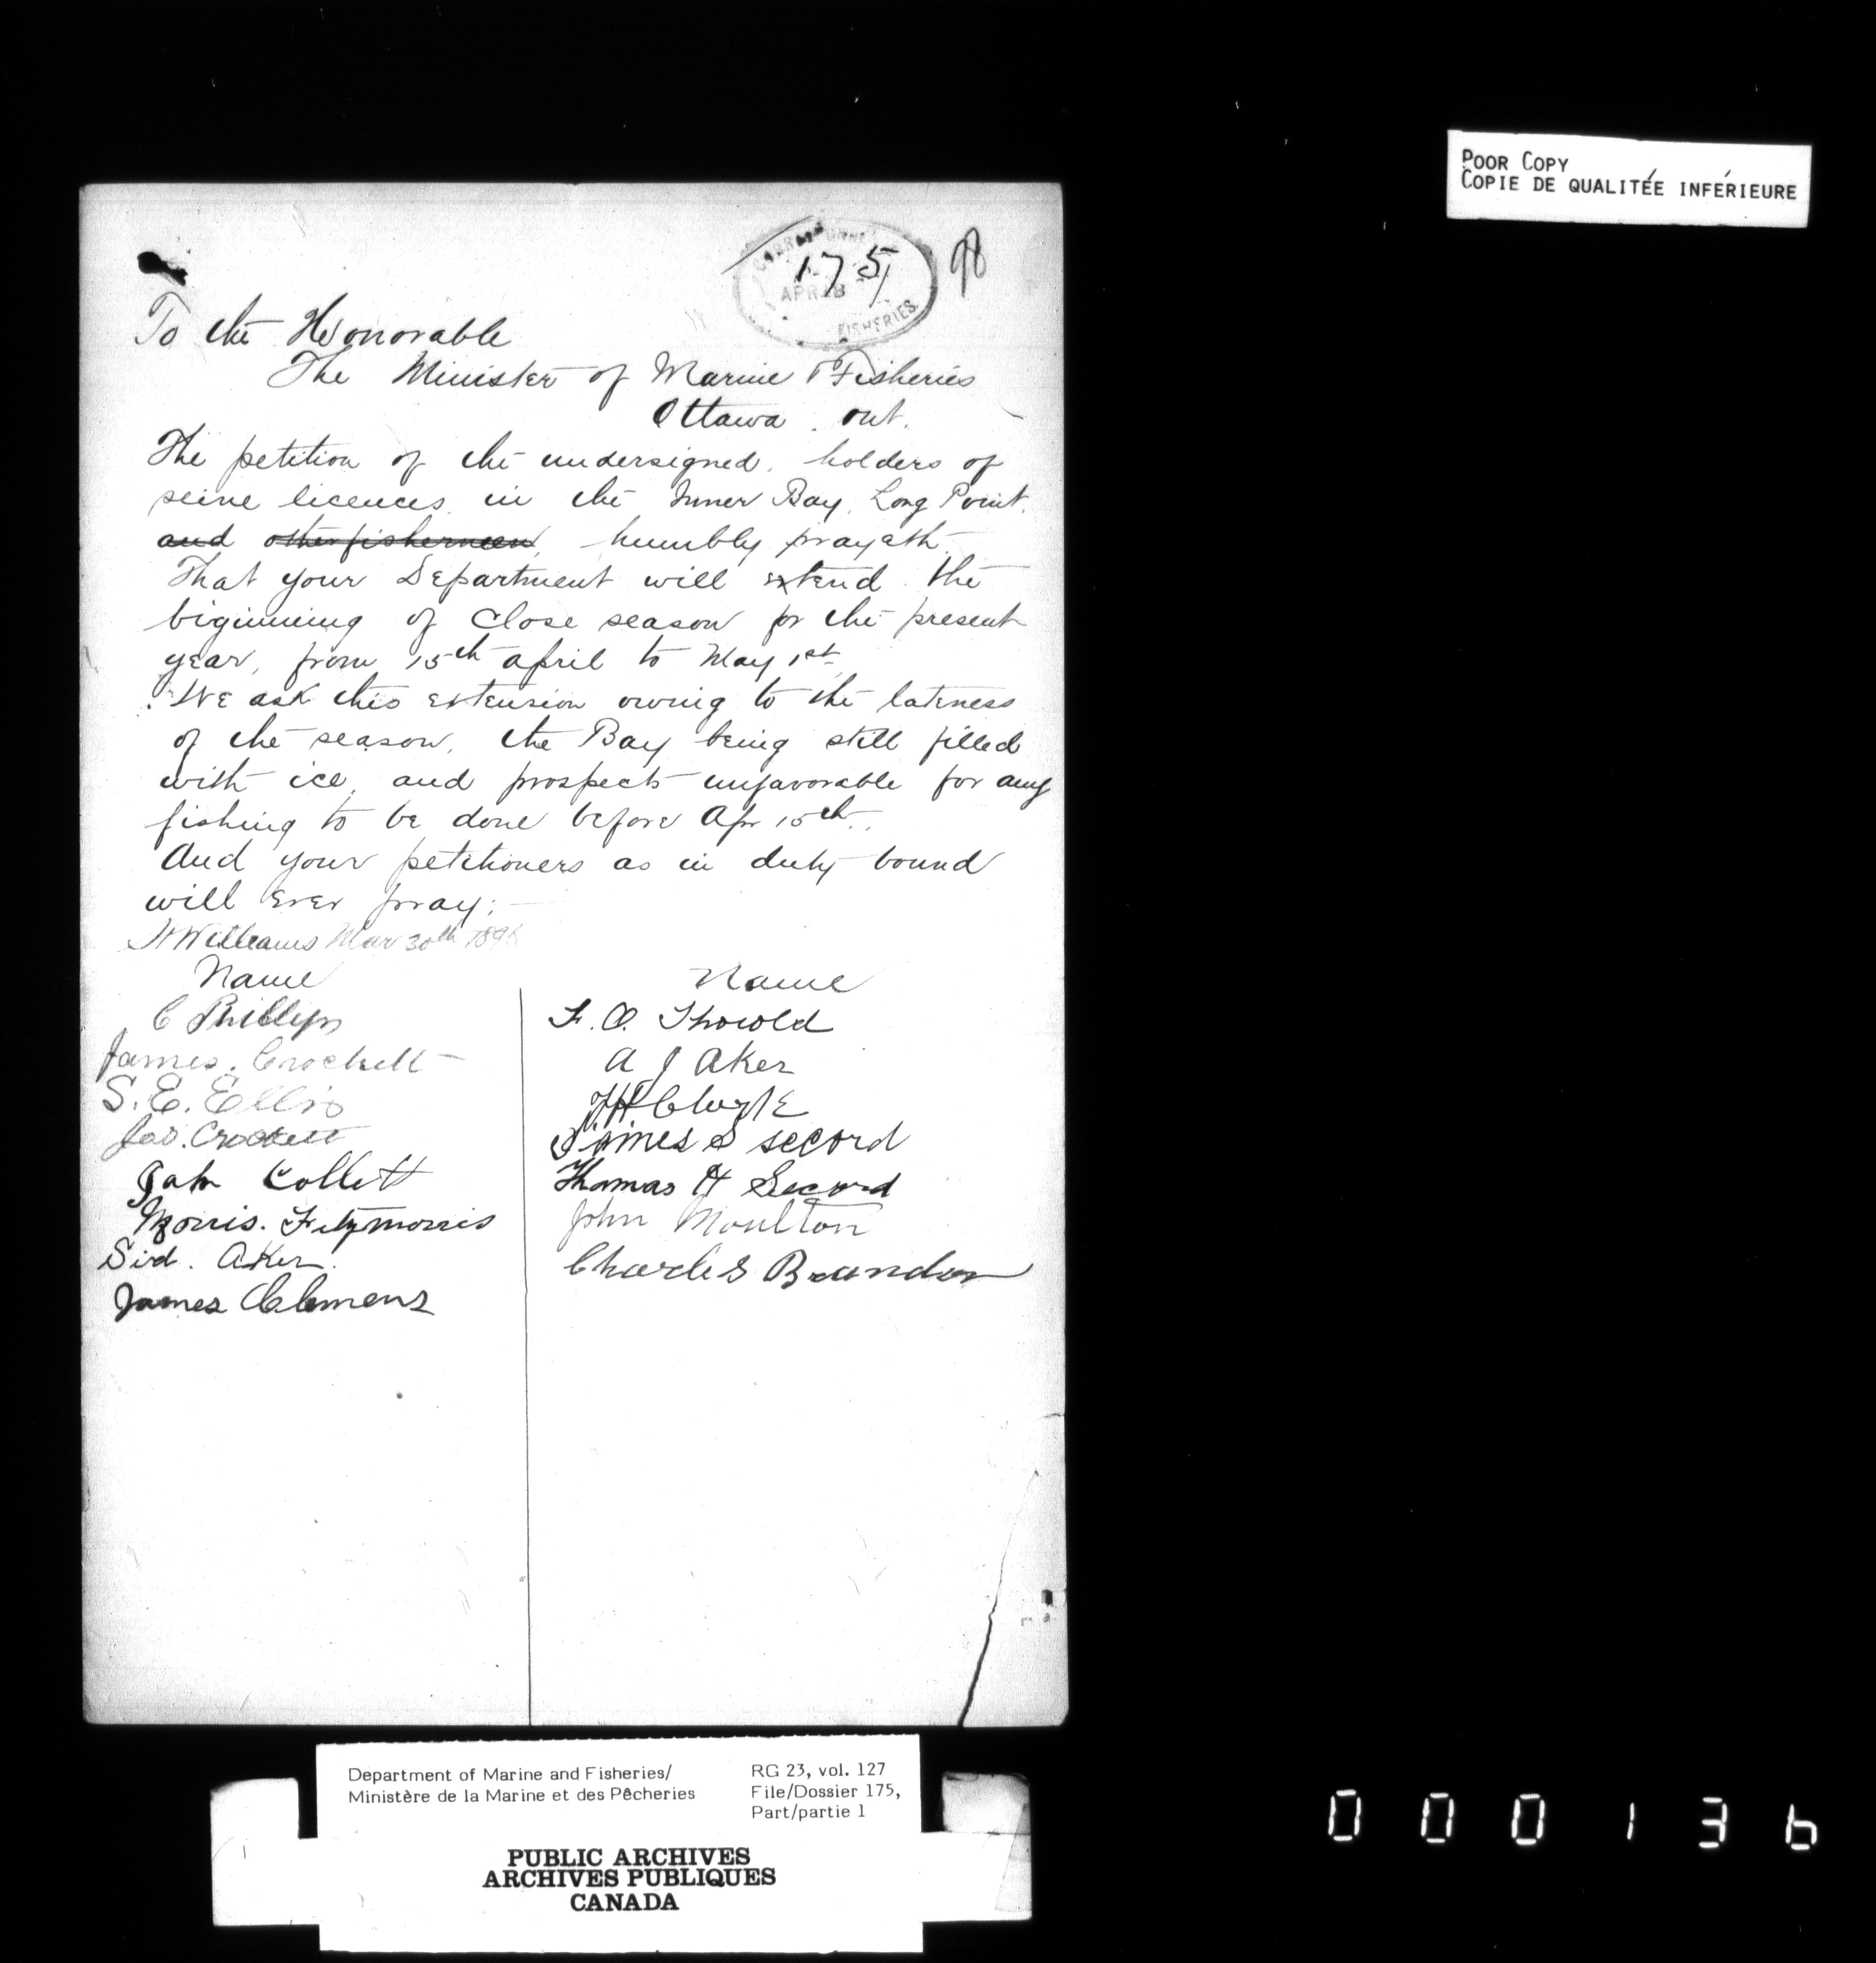 POOR COPY
COPIE DE QUALITÉE INFÉRIEURE
175
APR
FISHERIES
To the Honorable
The Minister of Marine & Fisheries
Ottawa. Ont.
The petition of the undersigned, holders of
seine licences in the Inner Bay, Long Point,
and other fishermen, humbly prayeth
That your Department will extend the
biginning of close season for the present
year, from 15th april to May 1st
We ask this extension owing to the lateness
of the season, the Bay being still filled
with ice, and prospects unfavorable for any
fishing to be done before Apr 15th.
And your petitioners as in duty bound
will ever pray;
Williams Mar 30th
Name
C Phillips
James. Crockett
S. E. Ellis
Jas. Crockett
Collett
Morris. Fitzmorris
Sid. Aker.
James Clemens
Name
A J Aker
James S secord
Thomas H Secord
John Moulton
Charles Brandon
Department of Marine and Fisheries/
Ministère de la Marine et des Pêcheries
RG 23, vol. 127
File/Dossier 175,
Part/partie 1
PUBLIC ARCHIVES
ARCHIVES PUBLIQUES
CANADA
000136